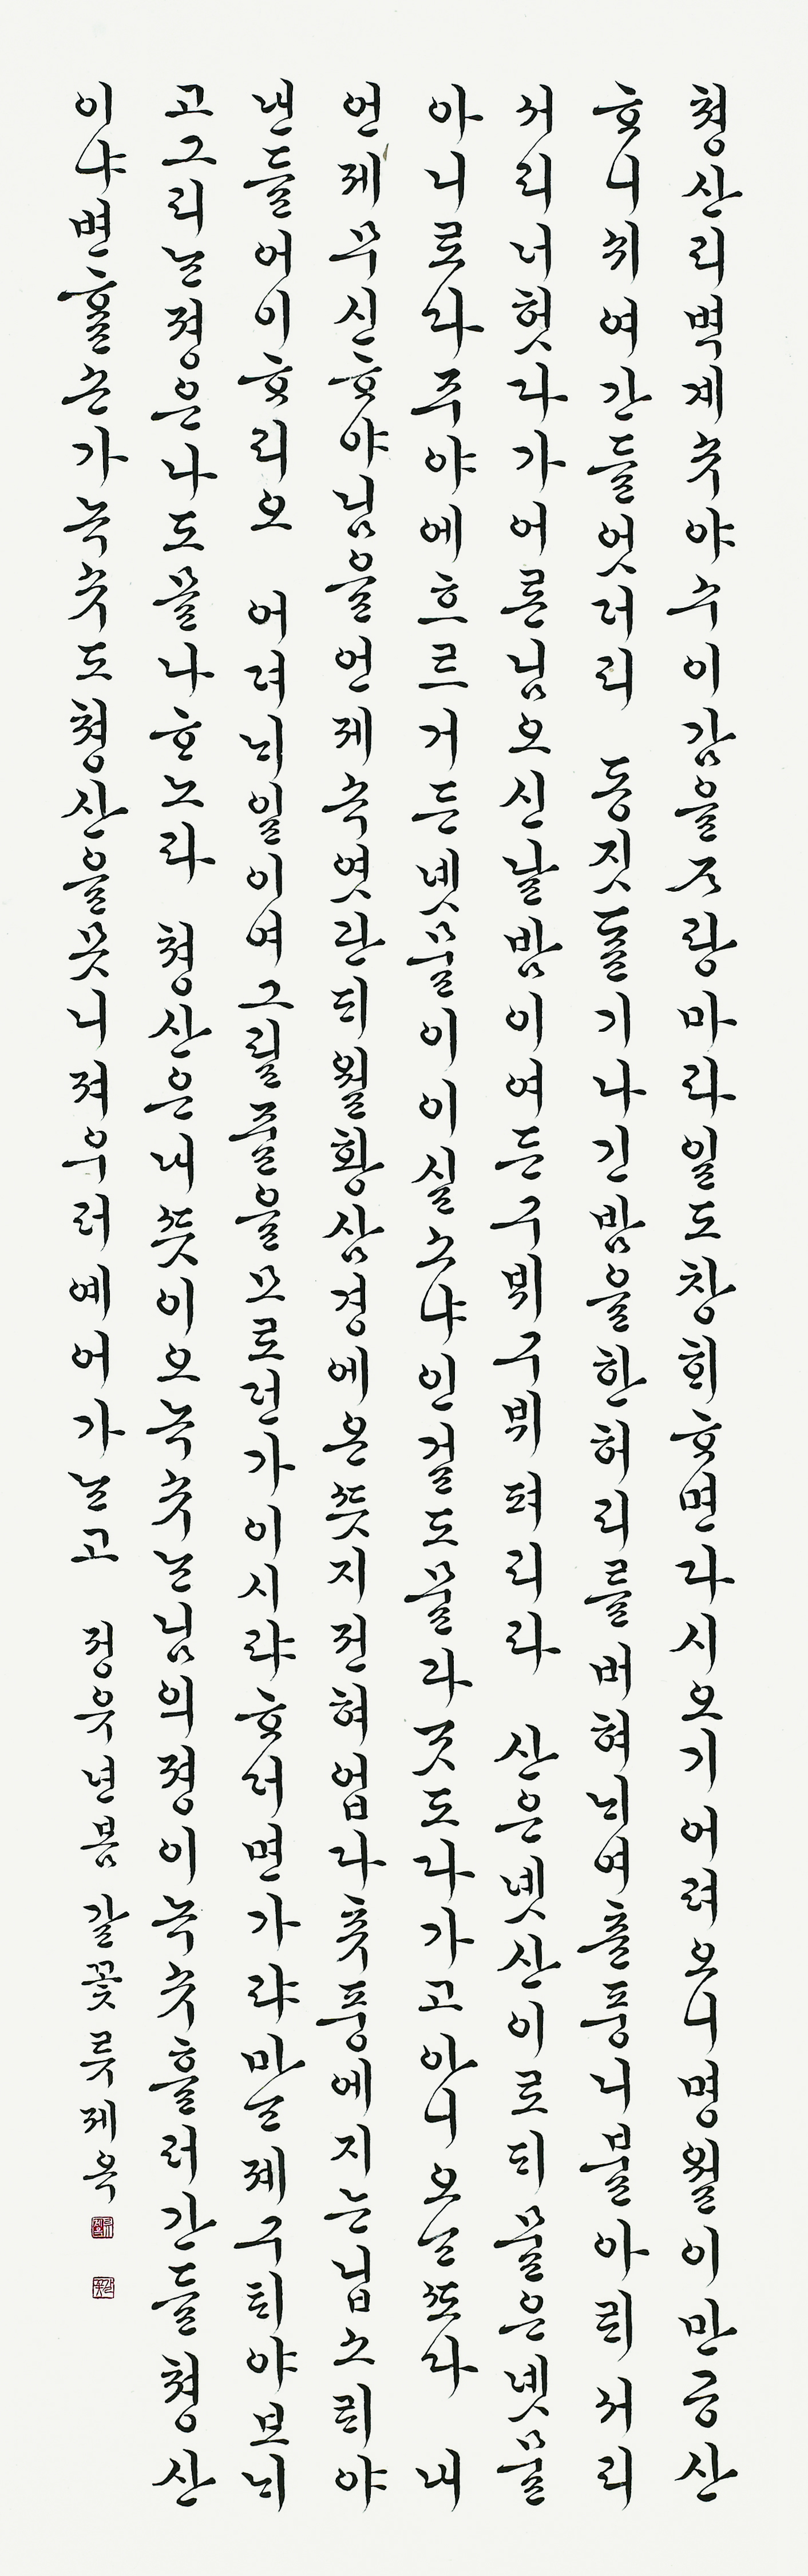 쳥산리벽계슈야수이감을ᄌᆞ랑마라일도창ᄒᆡᄒᆞ면다시오기어려오니명월이만공산
ᄒᆞ니쉬여간들엇더리 동짓ᄃᆞᆯ기나긴밤을한허리를버혀ᄂᆡ여츈풍니불아ᄅᆡ서리
서리너헛다가어론님오신날밤이여든구뷔구뷔펴리라 산은녯산이로ᄃᆡ물은녯물
아니로다주야에흐르거든녯물이이실소냐인걸도물과ᄀᆞᆺ도다가고아니오ᄂᆞᆫᄯᅩ다 내
언제무신ᄒᆞ야님을언제속엿관ᄃᆡ월황삼경에온ᄯᅳᆺ지전혀업다츄풍에지는닙소ᄅᆡ야
낸들어이ᄒᆞ리오 어뎌ᄂᆡ일이여그릴줄을모로던가이시랴ᄒᆞ더면가랴마ᄂᆞᆫ졔구ᄐᆡ야보ᄂᆡ
고그리ᄂᆞᆫ졍은나도몰나ᄒᆞ노라 쳥산은내ᄯᅳᆺ이오녹슈ᄂᆞᆫ님의졍이녹슈흘러간들쳥산
이야변ᄒᆞᆯ손가녹슈도쳥산을못니져우러예어가ᄂᆞᆫ고 정유년봄 갈꽃류제옥